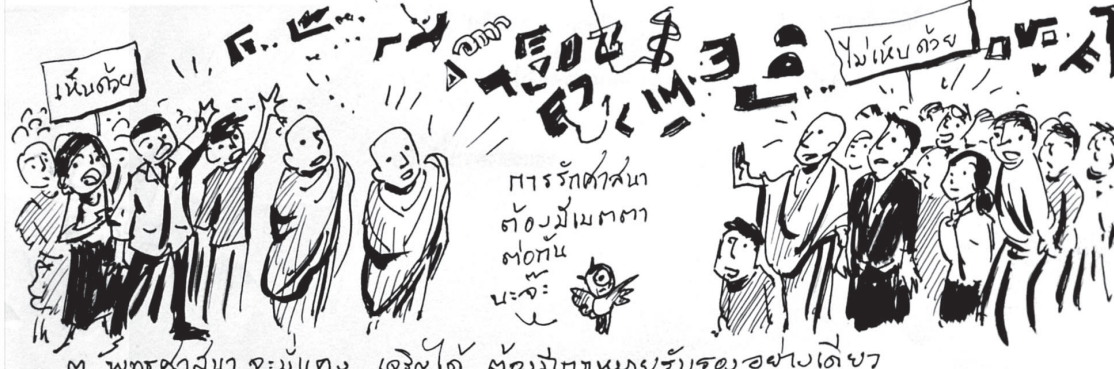 เห็นด้วย
ไม่เห็นด้วย
การรักศาสนา
ต้องมีเมตตา
ต่อกัน
นะจ๊ะ
๓ พุทธศาสนาจะมั่นคง เจริญได้ ต้องมีกฎหมายรับรองอย่างเดียว